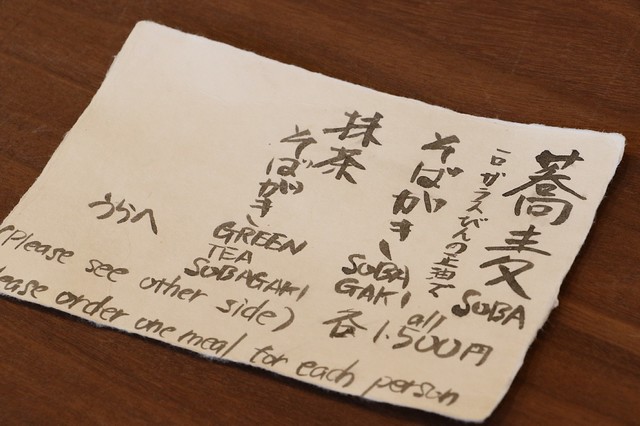 蕎麦
SOBA
一口がラスびんの正油で
そばがき
SOBA
GAKI
抹茶
そばがき
GREEN
TEA
SOBAGAKI
all
各1.500円
うらへ
(Please see other side)
ease order one meal for each person